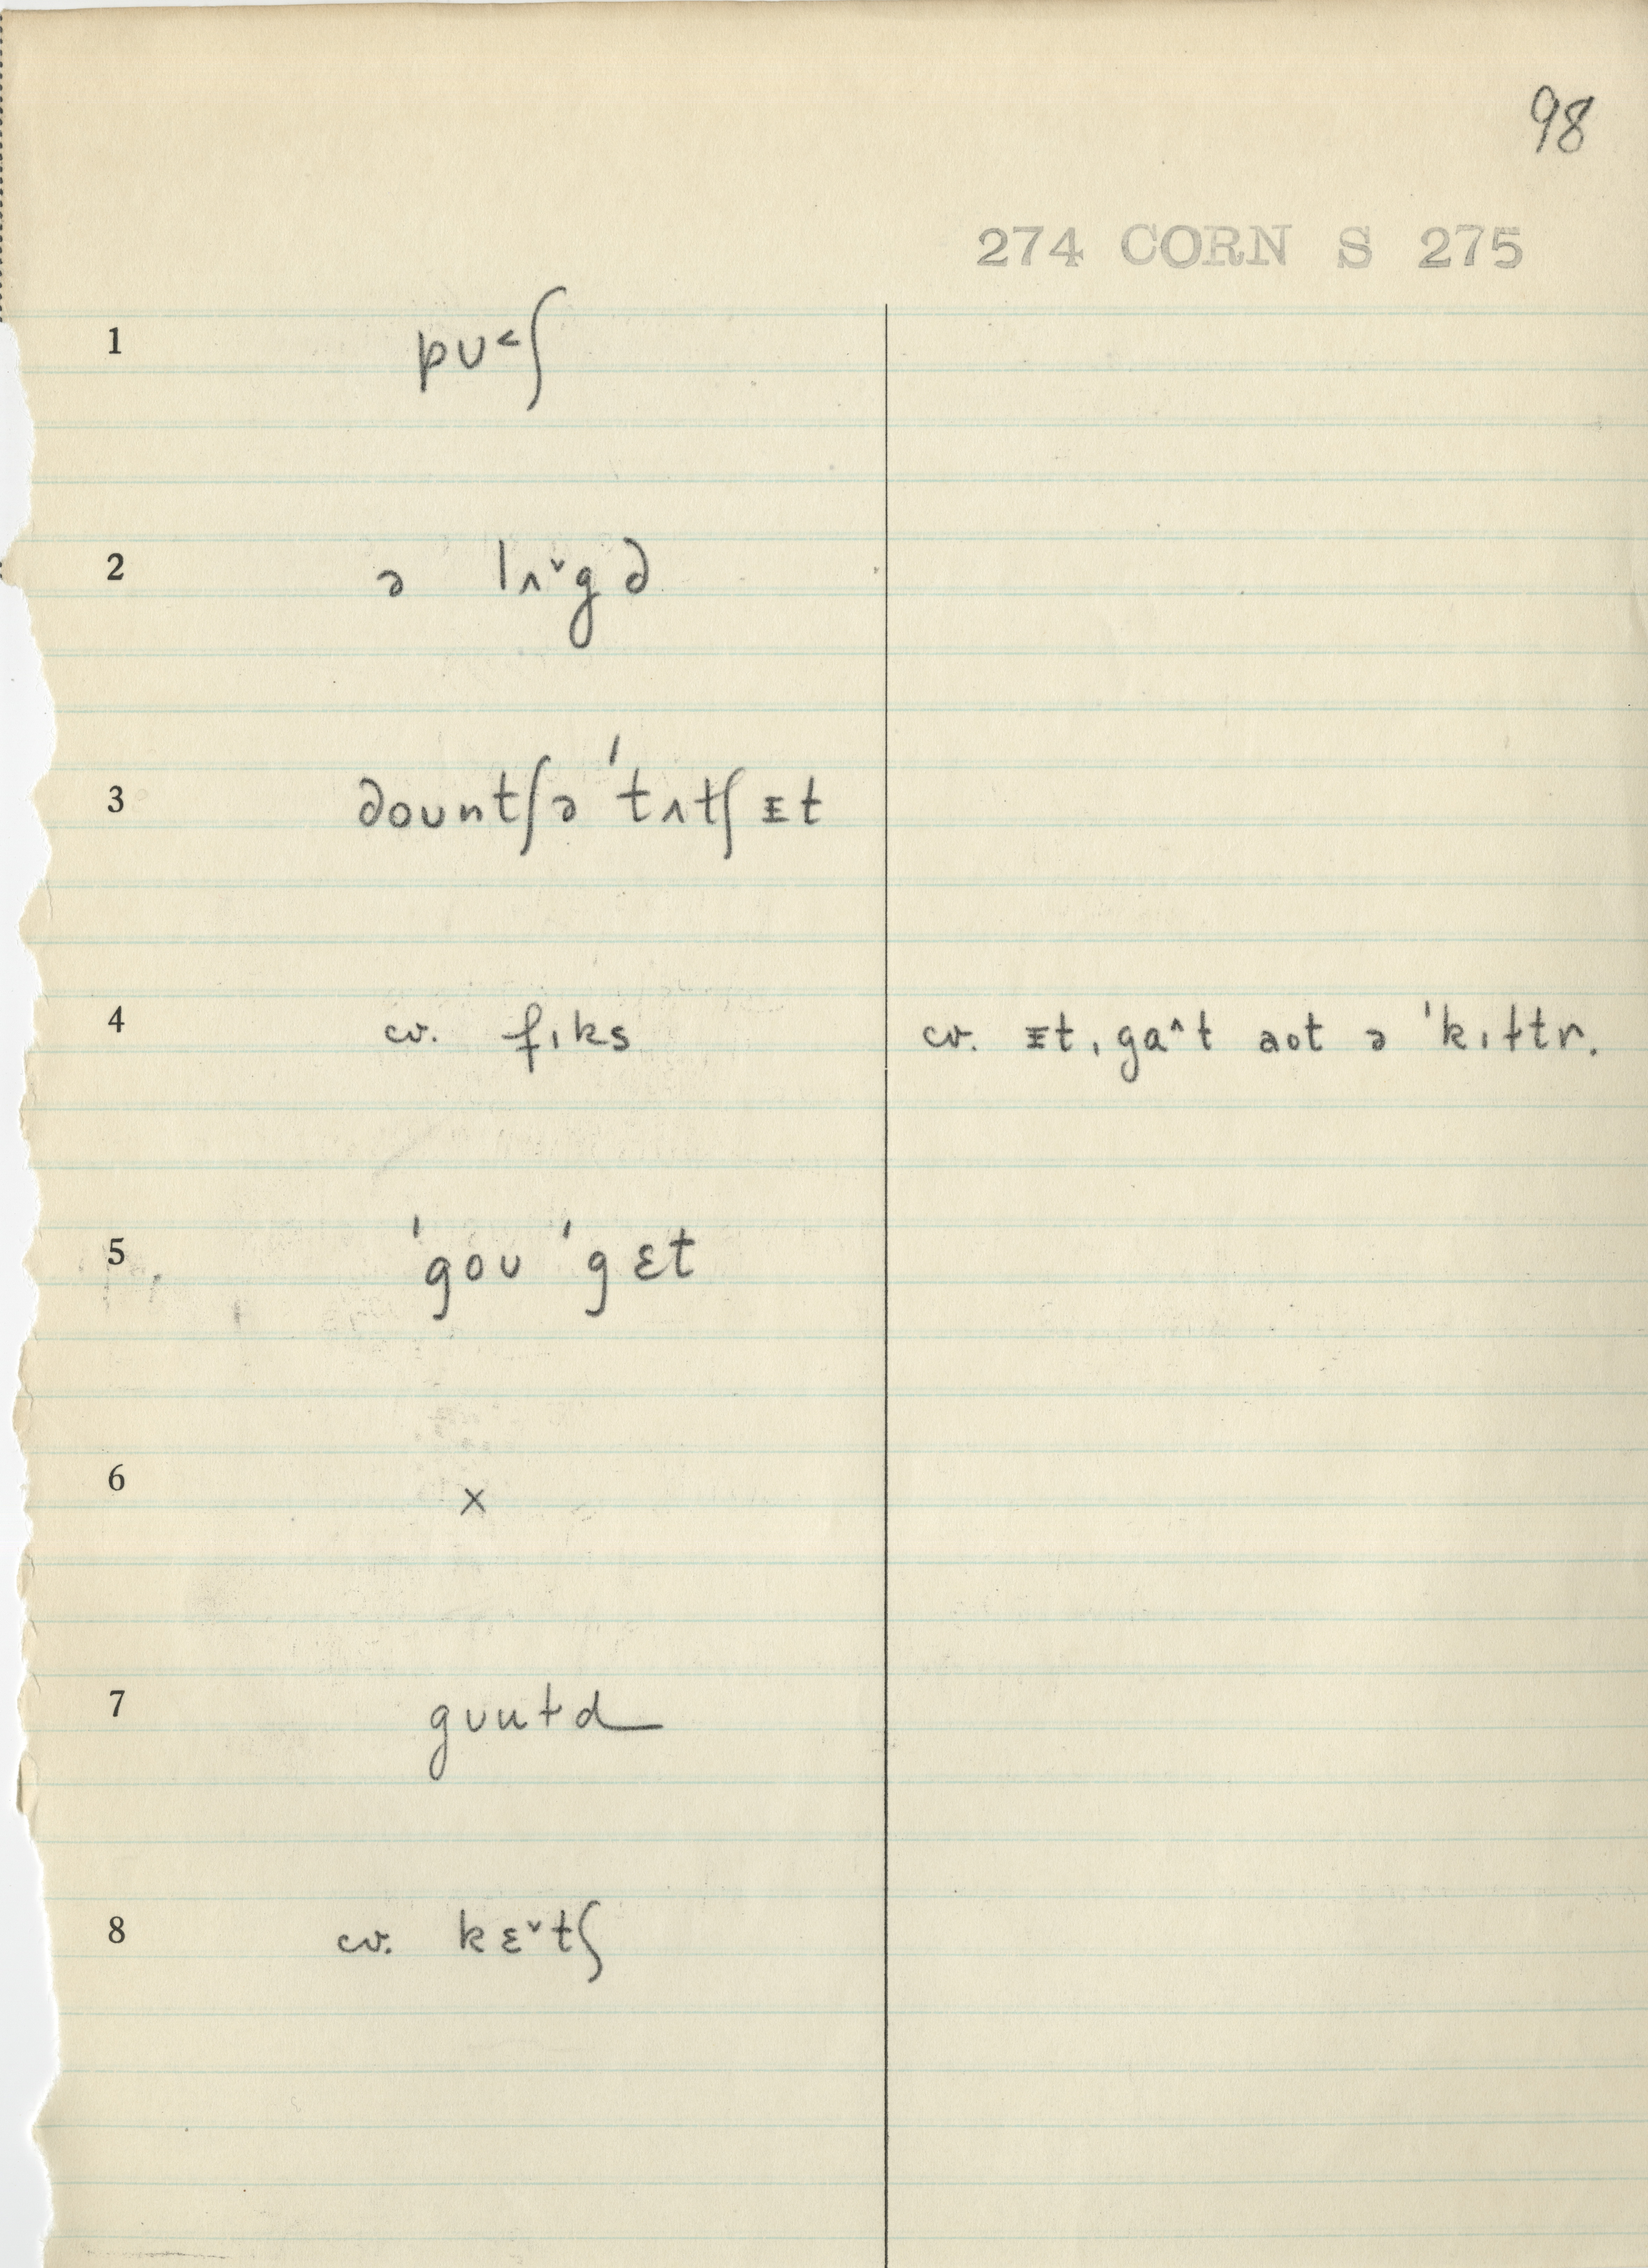 98
274 CORN S 275
1 pʊ˂ʃ
2 ə lʌ˅g ə
3 dountʃə 'tʌtʃ ɪt
4 cv. fɪks cv. ɪt, gɑ˄t aʊt ə 'kɪltr.
5 'goʊ 'gɛt
6 x
7 gʊutd
8 cv. kɛ˅tʃ